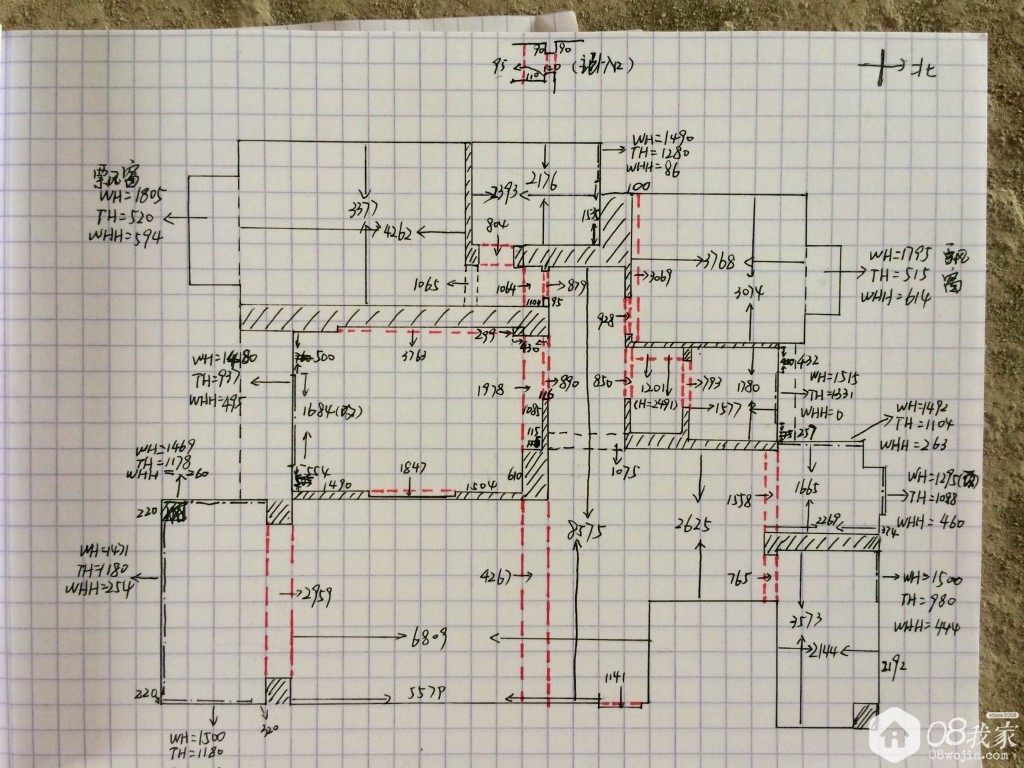 90 90
95
110
120
北
WH=1490
TH=1280
WHH=86
飘窗
WH=1805
TH=520
WHH=594
2176
2393
100
3377
4262
804
1535
3768
3069
3074
WH=1795
TH=515
WHH=614
飘窗
1065
1064
879
95
928
299
430
500
3763
WH=1480
TH=937
WHH=495
1684
1978
890
116
850
1201
(H=2491)
793
1780
1577
432
WH=1515
TH=1331
WHH=0
1085
115
257
WH=1492
TH=1104
WHH=263
WH=1469
TH=1178
WHH=60
554
1847
1490
1504
610
1075
1558
1665
2269
374
WH=1295
TH=1088
WHH=460
220
8575
2625
WH=1471
TH=1180
WHH=254
2959
4267
765
WH=1500
TH=980
WHH=444
3573
6809
2144
2192
220
5579
1141
320
WH=1500
TH=1180
08我家
08wojia.com